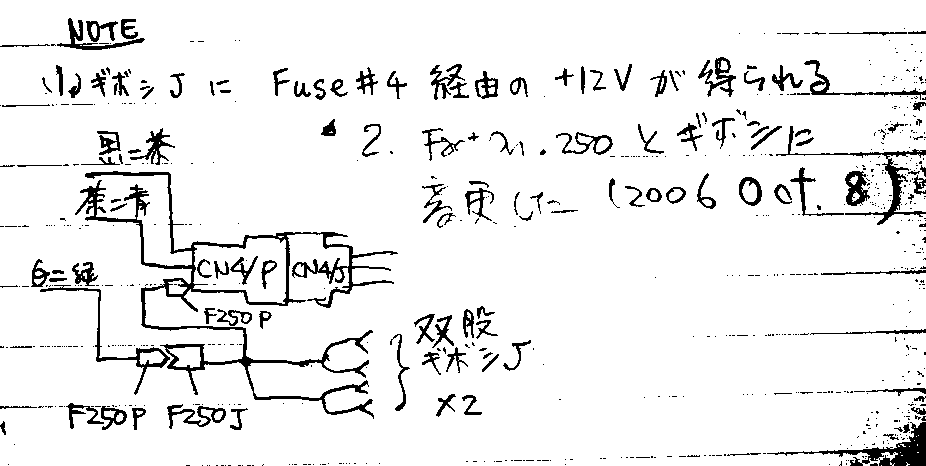 NOTE
(1) ギボシJ に Fuse#4 経由の +12V が 得られる
2. .250 と ギボシに
変更した (2006 Oct. 8)
黒=茶
茶=青
=緑
CN4/P CN4/J
F250P
双股
ギボシJ
×2
F250P F250J